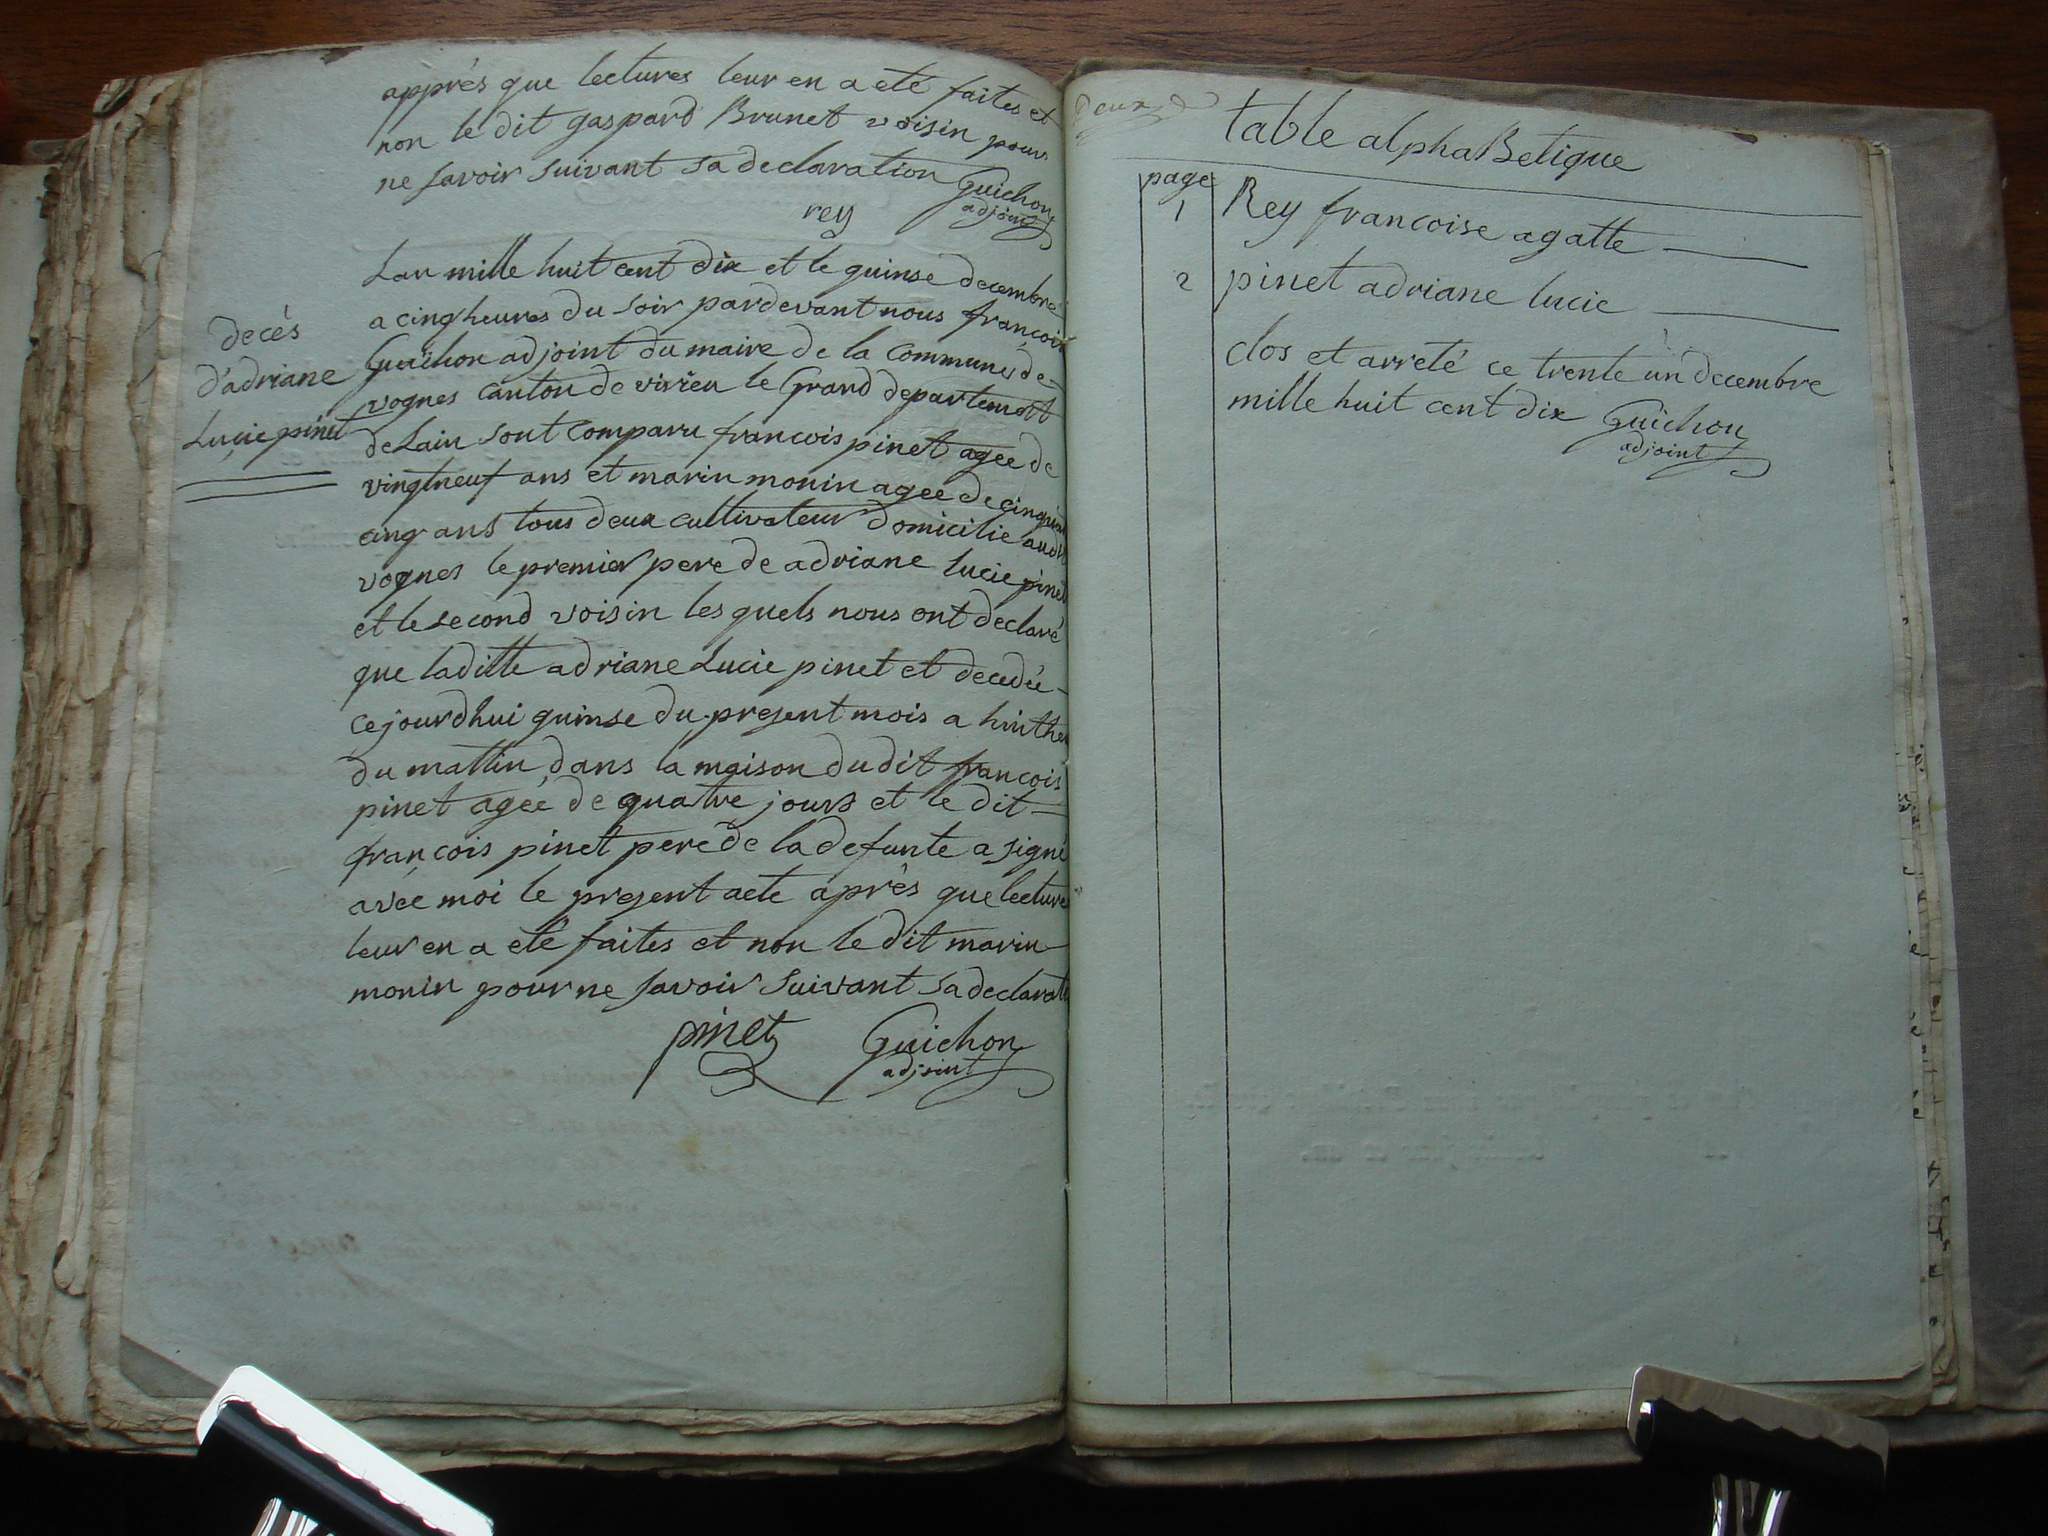 apprés que lectures leur en a eté faites et
non le dit gaspard Brunet voisin pour
ne savoir suivant sa declaration Guichon
rey adjoint
Lan mille huit cent dix et le quinse decembre
a cinq heures du soir pardevant nous francois
Guichon adjoint du maire de la Communes de
vognes canton de virieu le Grand departement
de Lain sont comparu francois pinet agee de
vingtneuf ans et marin monin agee de cinquante
cinq ans tous deux cultivateur domicilie audit
vognes le premier pere de adriane lucie pinet
et le second voisin les quels nous ont declaré
que laditte adriane Lucie pinet et decedée
ce jourdhui quinse du present mois a huit heu
du mattin dans la maison dudit francois
pinet agée de quatre jours et le dit
francois pinet pere de la defunte a signé
avec moi le present acte après que lecture
leur en a eté faites et non le dit marin
monin pour ne savoir suivant sa declarat
pinet Guichon
adjoint
decés
d'adriane
Lucie pinet
deux
table alphaBetique
page
1 Rey francoise agatte
2 pinet adriane lucie
clos et arreté ce trente un decembre
mille huit cent dix Guichon
adjoint